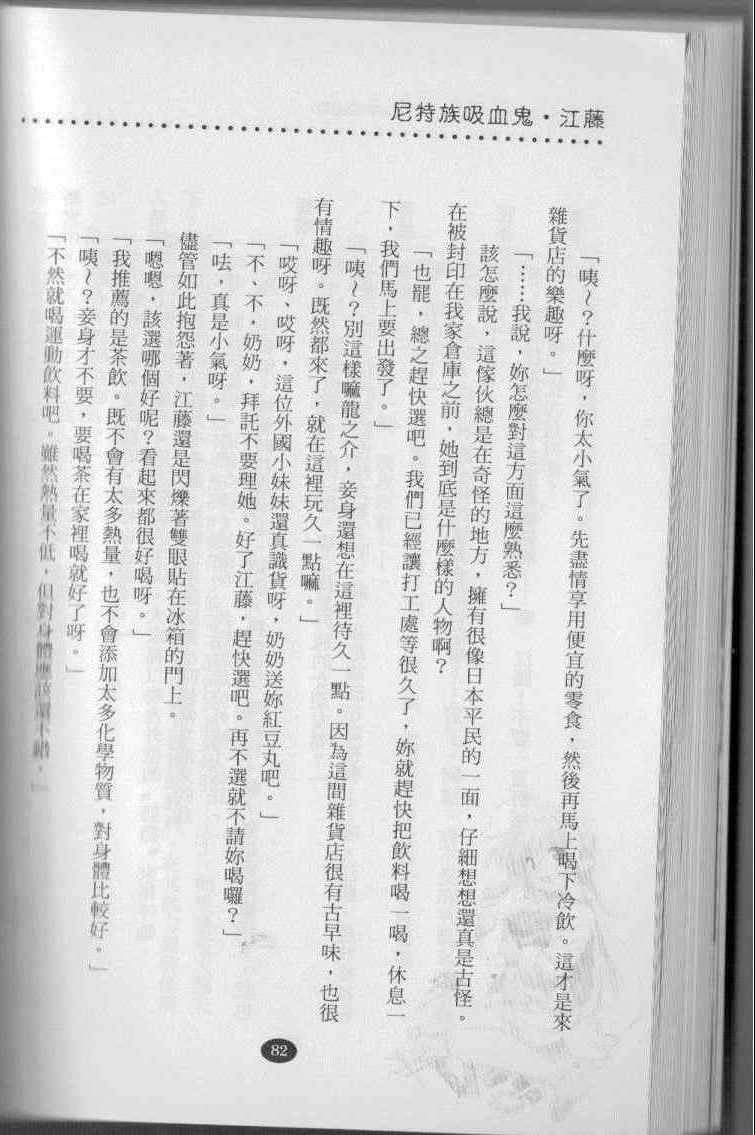 尼特族吸血鬼・江藤
「咦～？什麼呀，你太小氣了。先盡情享用便宜的零食，然後再馬上喝下冷飲。這才是來
雜貨店的樂趣呀。」
「……我說，妳怎麼對這方面這麼熟悉？」
該怎麼說，這傢伙總是在奇怪的地方，擁有很像日本平民的一面，仔細想想還真是古怪。
在被封印在我家倉庫之前，她到底是什麼樣的人物啊？
「也罷，總之趕快選吧。我們已經讓打工處等很久了，妳就趕快把飲料喝一喝，休息一
下，我們馬上要出發了。」
「咦～？別這樣嘛龍之介，妾身還想在這裡待久一點。因為這間雜貨店很有古早味，也很
有情趣呀。既然都來了，就在這裡玩久一點嘛。」
「哎呀、哎呀，這位外國小妹妹還真識貨呀，奶奶送妳紅豆丸吧。」
「不、不，奶奶，拜託不要理她。好了江藤，趕快選吧。再不選就不請妳喝囉？」
「呿，真是小氣呀。」
儘管如此抱怨著，江藤還是閃爍著雙眼貼在冰箱的門上。
「嗯嗯，該選哪個好呢？看起來都很好喝呀。」
「我推薦的是茶飲。既不會有太多熱量，也不會添加太多化學物質，對身體比較好。」
「咦～？妾身才不要，要喝茶在家裡喝就好了呀。」
「不然就喝運動飲料吧。雖然熱量不低，但對身體應該還不錯。」
82